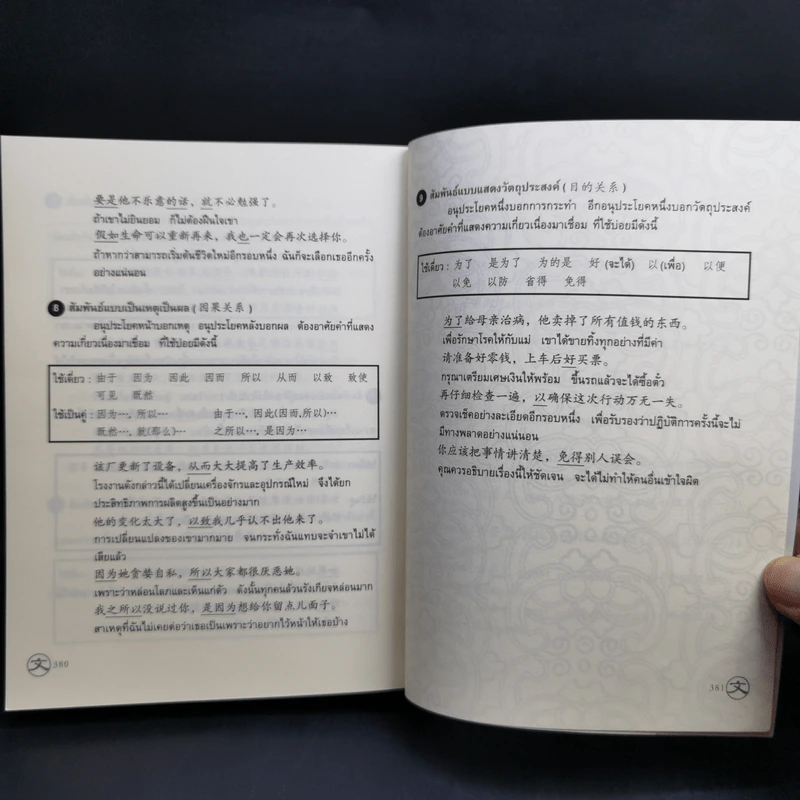 要是他不乐意的话，就不必勉强了。
ถ้าเขาไม่ยินยอม ก็ไม่ต้องฝืนใจเขา
假如生命可以重新再来，我也一定会再次选择你。
ถ้าหากว่าสามารถเริ่มต้นชีวิตใหม่อีกรอบหนึ่ง ฉันก็จะเลือกเธออีกครั้ง
อย่างแน่นอน
8 สัมพันธ์แบบเป็นเหตุเป็นผล (因果关系)
อนุประโยคหน้าบอกเหตุ อนุประโยคหลังบอกผล ต้องอาศัยคำที่แสดง
ความเกี่ยวเนื่องมาเชื่อม ที่ใช้บ่อยมีดังนี้
ใช้เดี่ยว : 由于 因为 因此 因而 所以 从而 以致 致使
可见 既然
ใช้เป็นคู่ : 因为…, 所以… 由于…, 因此(因而,所以)…
既然…, 就(那么)… 之所以…, 是因为…
该厂更新了设备，从而大大提高了生产效率。
โรงงานดังกล่าวนี้ได้เปลี่ยนเครื่องจักรและอุปกรณ์ใหม่ จึงได้ยก
ประสิทธิภาพการผลิตสูงขึ้นเป็นอย่างมาก
他的变化太大了，以致我几乎认不出他来了。
การเปลี่ยนแปลงของเขามากมาย จนกระทั่งฉันแทบจะจำเขาไม่ได้
เสียแล้ว
因为她贪婪自私，所以大家都很厌恶她。
เพราะว่าหล่อนโลภและเห็นแก่ตัว ดังนั้นทุกคนล้วนรังเกียจหล่อนมาก
我之所以没说过你，是因为想给你留点儿面子。
สาเหตุที่ฉันไม่เคยต่อว่าเธอเป็นเพราะว่าอยากไว้หน้าให้เธอบ้าง
文 380
9 สัมพันธ์แบบแสดงวัตถุประสงค์ (目的关系)
อนุประโยคหนึ่งบอกการกระทำ อีกอนุประโยคหนึ่งบอกวัตถุประสงค์
ต้องอาศัยคำที่แสดงความเกี่ยวเนื่องมาเชื่อม ที่ใช้บ่อยมีดังนี้
ใช้เดี่ยว : 为了 是为了 为的是 好 (จะได้) 以 (เพื่อ) 以便
以免 以防 省得 免得
为了给母亲治病，他卖掉了所有值钱的东西。
เพื่อรักษาโรคให้กับแม่ เขาได้ขายทิ้งทุกอย่างที่มีค่า
请准备好零钱，上车后好买票。
กรุณาเตรียมเศษเงินให้พร้อม ขึ้นรถแล้วจะได้ซื้อตั๋ว
再仔细检查一遍，以确保这次行动万无一失。
ตรวจเช็คอย่างละเอียดอีกรอบหนึ่ง เพื่อรับรองว่าปฏิบัติการครั้งนี้จะไม่
มีทางพลาดอย่างแน่นอน
你应该把事情讲清楚，免得别人误会。
คุณควรอธิบายเรื่องนี้ให้ชัดเจน จะได้ไม่ทำให้คนอื่นเข้าใจผิด
381 文